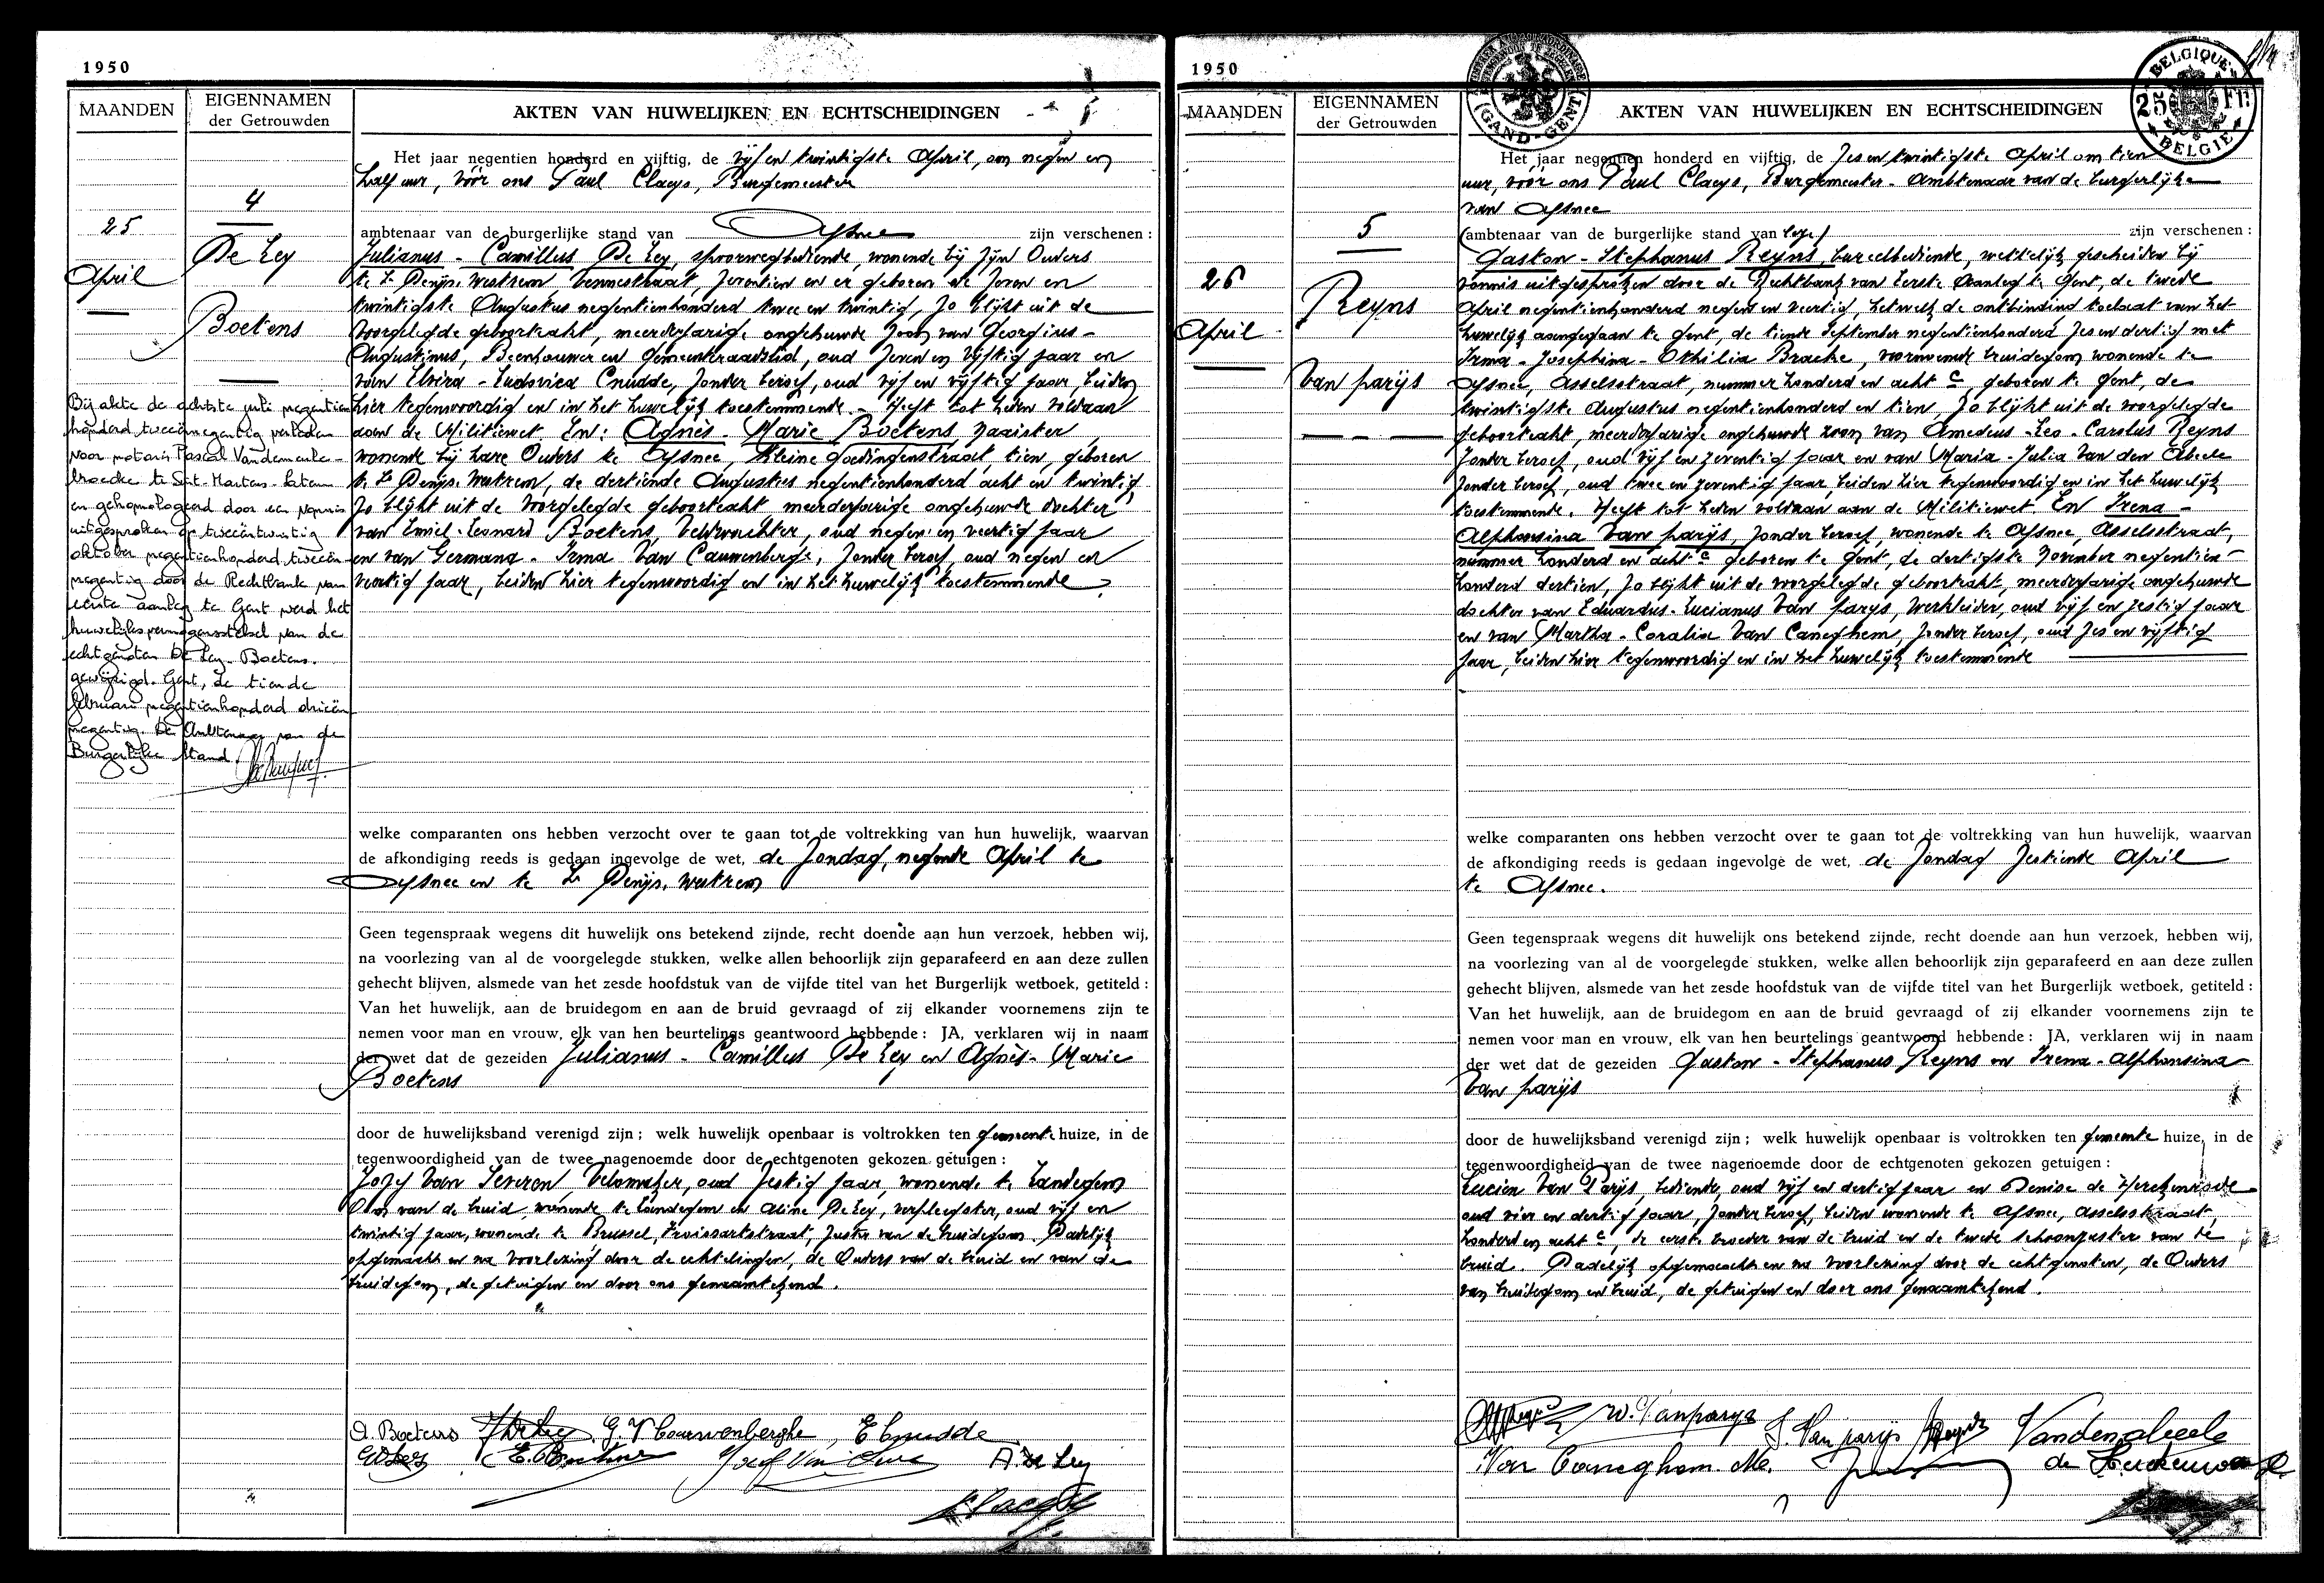 1950
MAANDEN
EIGENNAMEN
der Getrouwden
AKTEN VAN HUWELIJKEN EN ECHTSCHEIDINGEN
4
25
April
De Ley
Boetens
Bij akte de achtste juli negentien
honderd tweeënnegentig verleden
voor notaris Pascal Vandemeule-
broecke te Sint-Martens-Latem
en gehomologeerd door een vonnis
uitgesproken op tweeëntwintig
oktober negentienhonderd tweeën
negentig door de Rechtbank van
eerste aanleg te Gent werd het
huwelijksvermogensstelsel van de
echtgenoten De Ley-Boetens.
gewijzigd. Gent, de tiende
februari negentienhonderd drieën
negentig. De Ambtenaar van de
Burgerlijke Stand.
Het jaar negentien honderd en vijftig, de vijf en twintigste April, om negen en
half uur, vóór ons Paul Claeys, Burgemeester
ambtenaar van de burgerlijke stand van Afsnee zijn verschenen :
Julianus - Camillus De Ley, spoorwegbediende, wonende bij zijn Ouders
te St Denijs. Westrem bennestraat, zeventien en er geboren de zeven en
twintigste Augustus negentienhonderd twee en twintig, zo blijkt uit de
voorgelegde geboorteakt, meerderjarige ongehuwde zoon van Georgius -
Augustinus, Beenhouwer en Gemeenteraadslid, oud zeven en vijftig jaar en
van Elvira - Ludovica Cnudde, zonder beroep, oud vijf en vijftig jaar, beiden
hier tegenwoordig en in het huwelijk toestemmende - Heeft tot heden voldaan
aan de Militiewet En: Agnès - Marie Boetens naaister
wonende bij hare Ouders te Afsnee, Kleine Goedingenstraat, tien, geboren
te St Denijs. Westrem, de dertiende Augustus negentienhonderd acht en twintig,
zo blijkt uit de voorgelegde geboorteakt meerderjarige ongehuwde dochter
van Emiel - Leonard Boetens, Veldwachter, oud negen en veertig jaar
en van Germana - Irma Van Cauwenberghe, zonder beroep, oud negen en
veertig jaar, beiden hier tegenwoordig en in het huwelijk toestemmende
welke comparanten ons hebben verzocht over te gaan tot de voltrekking van hun huwelijk, waarvan
de afkondiging reeds is gedaan ingevolge de wet, de Zondag, negende April te
Afsnee en te St Denijs. Westrem
Geen tegenspraak wegens dit huwelijk ons betekend zijnde, recht doende aan hun verzoek, hebben wij,
na voorlezing van al de voorgelegde stukken, welke allen behoorlijk zijn geparafeerd en aan deze zullen
gehecht blijven, alsmede van het zesde hoofdstuk van de vijfde titel van het Burgerlijk wetboek, getiteld :
Van het huwelijk, aan de bruidegom en aan de bruid gevraagd of zij elkander voornemens zijn te
nemen voor man en vrouw, elk van hen beurtelings geantwoord hebbende : JA, verklaren wij in naam
der wet dat de gezeiden Julianus - Camillus De Ley en Agnès - Marie
Boetens
door de huwelijksband verenigd zijn ; welk huwelijk openbaar is voltrokken ten gemeente huize, in de
tegenwoordigheid van de twee nagenoemde door de echtgenoten gekozen getuigen :
Jozef Van Severen, Velomaker, oud zestig jaar, wonende te Landegem
Oom van de bruid, wonende te Landegem en Aline De Ley, verpleegster, oud vijf en
twintig jaar, wonende te Brussel, Froissartstraat, zuster van de bruidegom. Dadelijk
opgemaakt en na voorlezing door de echtelingen, de Ouders van de bruid en van de
bruidegom, de getuigen en door ons genaamtekend.
A. Boetens G. V Cauwenberghe, E Cnudde
A. De Ley
1950
GAND-GENT
BELGIQUE
25 Fr.
BELGIE
MAANDEN
EIGENNAMEN
der Getrouwden
AKTEN VAN HUWELIJKEN EN ECHTSCHEIDINGEN
5
26
April
Reyns
Van parijs
Het jaar negentien honderd en vijftig, de zes en twintigste April om tien
uur, vóór ons Paul Claeys, Burgemeester - Ambtenaar van de burgerlijke
van Afsnee
ambtenaar van de burgerlijke stand van zijn verschenen :
Gaston - Stephanus Reyns, bureelbediende, wettelijk gescheiden bij
vonnis uitgesproken door de Rechtbank van Eerste Aanleg te Gent, de twede
April negentienhonderd negen en veertig, hetwelk de ontbinding toelaat van het
huwelijk aangegaan te Gent, de tiende September negentienhonderd zes en dertig met
Irma - Josephina - Othilia Bracke, vornoemde bruidegom wonende te
Afsnee, Asselsstraat, nummer honderd en acht c geboren te Gent, de
twintigste Augustus negentienhonderd en tien, zo blijkt uit de voorgelegde
geboorteakt, meerderjarige ongehuwde zoon van Amedeus - Leo - Carolus Reyns
zonder beroep, oud vijf en zeventig jaar en van Maria - Julia Van den Abeele
zonder beroep, oud twee en zeventig jaar, beiden hier tegenwoordig en in het huwelijk
toestemmende. Heeft tot heden voldaan aan de Militiewet En Irena -
Alphonsina Van parijs, zonder beroep, wonende te Afsnee, Asselsstraat,
nummer honderd en acht c geboren te Gent, de dertigste November negentien-
honderd dertien, zo blijkt uit de voorgelegde geboorteakt, meerderjarige ongehuwde
dochter van Eduardus - Lucianus Van parijs, Werkleider, oud vijf en zestig jaar
en van Martha - Coralia Van Caneghem, zonder beroep, oud zes en vijftig
jaar, beiden hier tegenwoordig en in het huwelijk toestemmende
welke comparanten ons hebben verzocht over te gaan tot de voltrekking van hun huwelijk, waarvan
de afkondiging reeds is gedaan ingevolge de wet, de Zondag zestiende April
te Afsnee.
Geen tegenspraak wegens dit huwelijk ons betekend zijnde, recht doende aan hun verzoek, hebben wij,
na voorlezing van al de voorgelegde stukken, welke allen behoorlijk zijn geparafeerd en aan deze zullen
gehecht blijven, alsmede van het zesde hoofdstuk van de vijfde titel van het Burgerlijk wetboek, getiteld :
Van het huwelijk, aan de bruidegom en aan de bruid gevraagd of zij elkander voornemens zijn te
nemen voor man en vrouw, elk van hen beurtelings geantwoord hebbende : JA, verklaren wij in naam
der wet dat de gezeiden Gaston - Stephanus Reyns en Irena - Alphonsina
Van parijs
door de huwelijksband verenigd zijn ; welk huwelijk openbaar is voltrokken ten gemeente huize, in de
tegenwoordigheid van de twee nagenoemde door de echtgenoten gekozen getuigen :
Lucien Van Parijs, bediende, oud vijf en dertig jaar en Denise de
oud vier en dertig jaar, zonder beroep, beiden wonende te Afsnee, Asselsstraat,
honderd en acht c, de eerste broeder van de bruid en de twede schoonzuster van de
bruid. Dadelijk opgemaakt en na voorlezing door de echtgenoten, de Ouders
van bruidegom en bruid, de getuigen en door ons genaamtekend.
Vandenabeele
Van Caneghem. Ma.